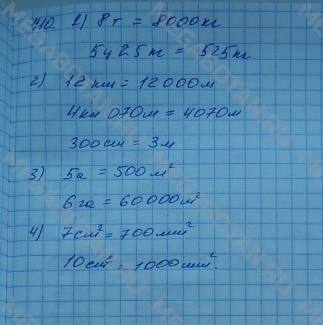 710. 1) 8 т = 8000 кг
5ц 25 кг = 525 кг
2) 12 км = 12 000 м
4км 070м = 4070м
300см = 3м
3) 5а = 500 м²
6 га = 60000 м²
4) 7см² = 700 мм²
10см² = 1000мм².